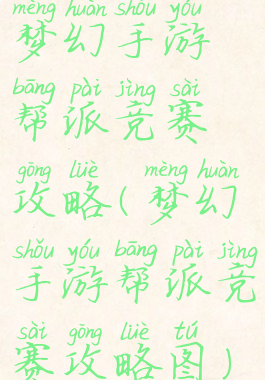 mèng huàn shǒu yóu
梦幻手游
bāng pài jìng sài
帮派竞赛
gōng lüè mèng huàn
攻略(梦幻
shǒu yóu bāng pài jìng
手游帮派竞
sài gōng lüè tú
赛攻略图)